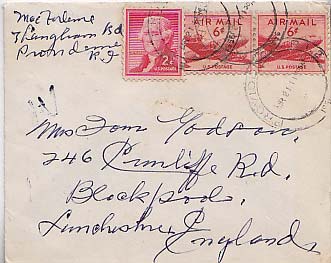 MacFarlane
7 Langham Rd
Providence
R.I
2¢
U.S. POSTAGE
AIR MAIL
6¢
U.S. POSTAGE
AIR MAIL
6¢
U.S. POSTAGE
Mrs Tom Godson,
246 Cunliffe Rd,
Blackpool,
Lanchashire,
England